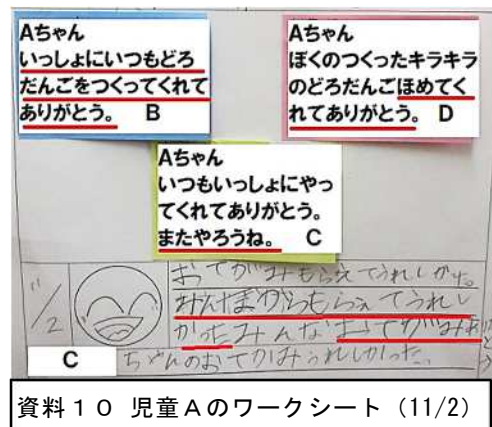 Aちゃん
いっしょにいつもどろ
だんごをつくってくれて
ありがとう。 B
Aちゃん
ぼくのつくったキラキラ
のどろだんごほめてく
れてありがとう。 D
Aちゃん
いつもいっしょにやっ
てくれてありがとう。
またやろうね。 C
11/2
おてがみもらえてうれしかた。
みんなからもらえてうれし
かったみんなおてがみあ
C ちゃんのおてがみうれしかった
資料10 児童Aのワークシート (11/2)